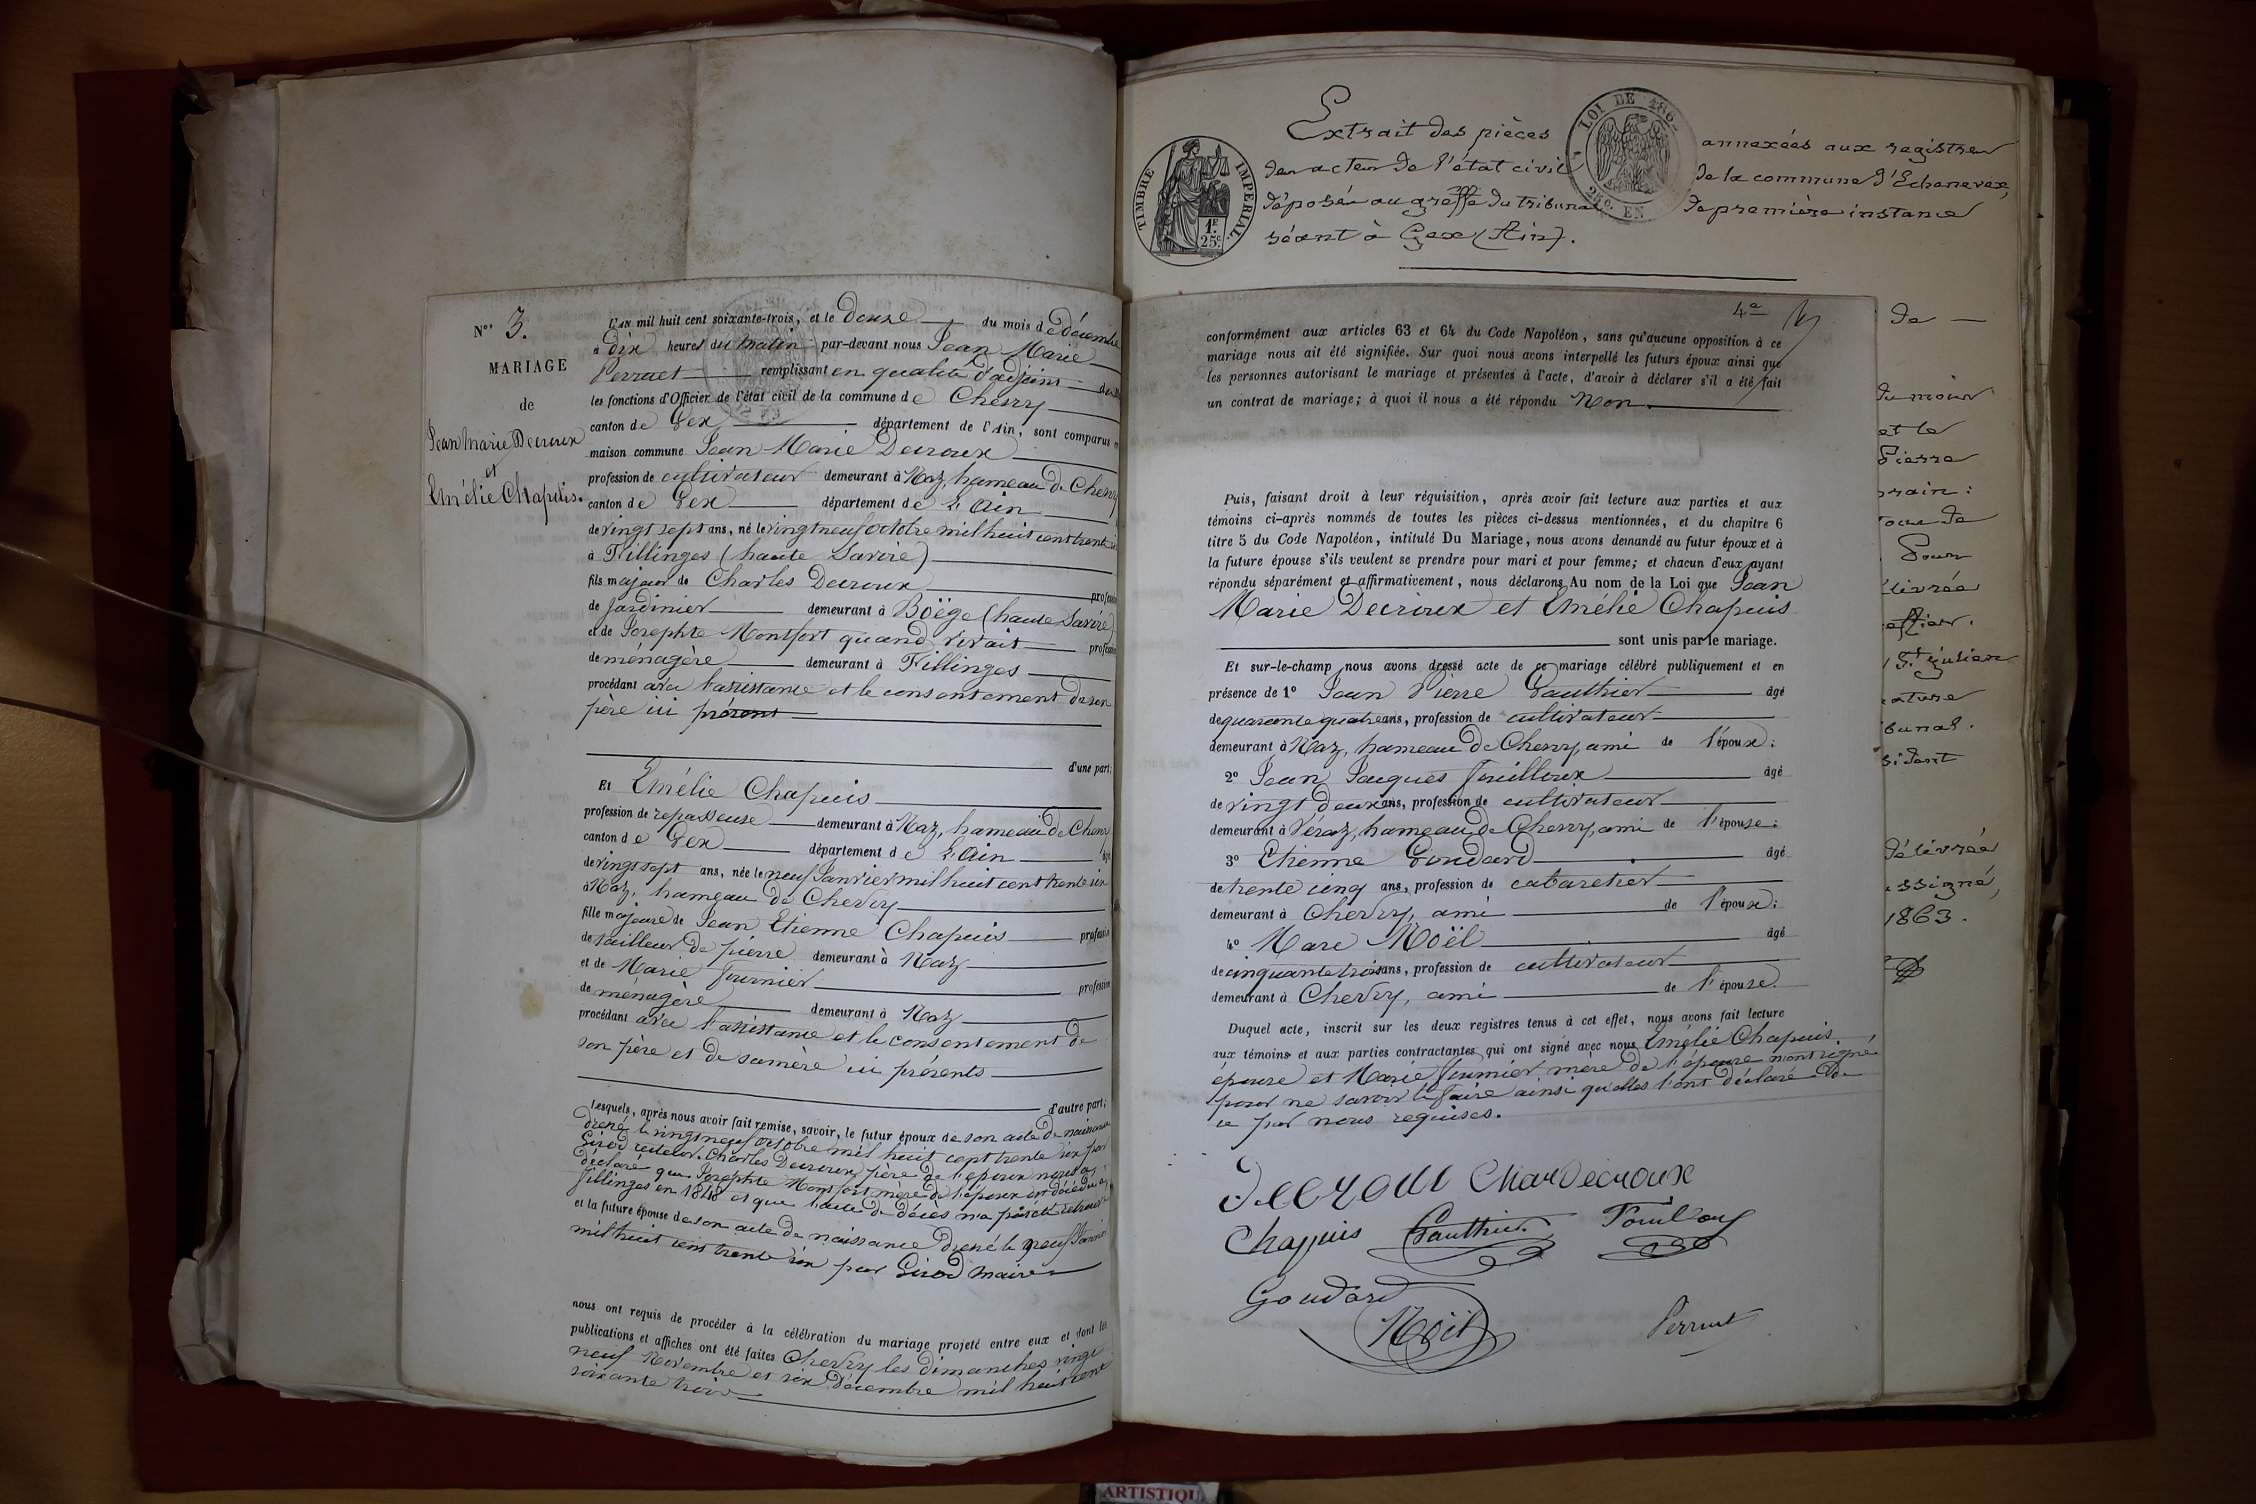 N° 3.
MARIAGE
de
Jean Marie Decroux
et
Emélie Chapuis.
L'AN mil huit cent soixante-trois, et le douze du mois de décembre
à dix heures du matin par-devant nous Jean Marie
Perruet remplissant en qualité d'adjoint
les fonctions d'Officier de l'état civil de la commune de Chevry
canton de Gex département de l'Ain, sont comparus en
maison commune Jean Marie Decroux
profession de cultivateur demeurant à Naz, hameau de Chevry
canton de Gex département de L'Ain
de vingt sept ans, né le vingt neuf octobre mil huit cent trente six
à Fillinges (haute Savoie)
fils majeur de Charles Decroux profession
de Jardinier demeurant à Boëge (haute Savoie)
et de Josephte Montfort quand vivait profession
de ménagère demeurant à Fillinges
procédant avec l'assistance et le consentement de son
père ici présent
d'une part;
Et Emélie Chapuis
profession de repasseuse demeurant à Naz, hameau de Chevry
canton de Gex département de L'Ain âgé
de vingt sept ans, née le neuf Janvier mil huit cent trente six
à Naz, hameau de Chevry
fille majeure de Jean Etienne Chapuis profession
de tailleur de pierre demeurant à Naz
et de Marie Fournier profession
de ménagère demeurant à Naz
procédant avec l'assistance et le consentement de
son père et de sa mère ici présents
d'autre part;
Lesquels, après nous avoir fait remise, savoir, le futur époux de son acte de naissance
dressé le vingt neuf octobre mil huit cent trente six par
Girod recteur. Charles Decroux père de l'époux nous a
déclaré que Josephte Montfort mère de l'époux est décédée à
Fillinges en 1848 et que l'acte de décès n'a pas été retrouvé
et la future épouse de son acte de naissance dressé le neuf Janvier
mil huit cent trente six par Girod Maire
nous ont requis de procéder à la célébration du mariage projeté entre eux et dont les
publications et affiches ont été faites Chevry les dimanches vingt
neuf Novembre et six Décembre mil huit cent
soixante trois
TIMBRE IMPERIAL.
1F. 25c.
LOI DE 1862
25c. EN
Extrait des pièces annexées aux registres
des actes de l'état civil de la commune d'Echenevex,
déposés au greffe du tribunal de première instance
séant à Gex (Ain).
4e
conformément aux articles 63 et 64 du Code Napoléon, sans qu'aucune opposition à ce
mariage nous ait été signifiée. Sur quoi nous avons interpellé les futurs époux ainsi que
les personnes autorisant le mariage et présentes à l'acte, d'avoir à déclarer s'il a été fait
un contrat de mariage; à quoi il nous a été répondu Non.
Puis, faisant droit à leur réquisition, après avoir fait lecture aux parties et aux
témoins ci-après nommés de toutes les pièces ci-dessus mentionnées, et du chapitre 6
titre 5 du Code Napoléon, intitulé Du Mariage, nous avons demandé au futur époux et à
la future épouse s'ils veulent se prendre pour mari et pour femme; et chacun d'eux ayant
répondu séparément et affirmativement, nous déclarons Au nom de la Loi que Jean
Marie Decroux et Emélie Chapuis
sont unis par le mariage.
Et sur-le-champ nous avons dressé acte de ce mariage célébré publiquement et en
présence de 1° Jean Pierre Gauthier âgé
de quarante quatre ans, profession de cultivateur
demeurant à Naz, hameau de Chevry, ami de l'époux:
2° Jean Jacques Fouilloux âgé
de vingt deux ans, profession de cultivateur
demeurant à Véraz, hameau de Chevry, ami de l'épouse:
3° Etienne Goudard âgé
de trente cinq ans, profession de cabaretier
demeurant à Chevry, ami de l'époux:
4° Marc Noël âgé
de cinquante trois ans, profession de cultivateur
demeurant à Chevry, ami de l'épouse.
Duquel acte, inscrit sur les deux registres tenus à cet effet, nous avons fait lecture
aux témoins et aux parties contractantes qui ont signé avec nous Emélie Chapuis.
épouse et Marie Fournier mère de l'épouse n'ont signé
pour ne savoir le faire ainsi qu'elles l'ont déclaré de
ce par nous requises.
Decroux Char Decroux
Chapuis Gauthier Fouilloux
Goudard
Noël Perruet
de
du mois
et le
Pierre
toire de
Pour
livrée
effier.
St Julien
nature
bunal.
sident
délivrée
ssigné,
1863.
ARTISTIQU